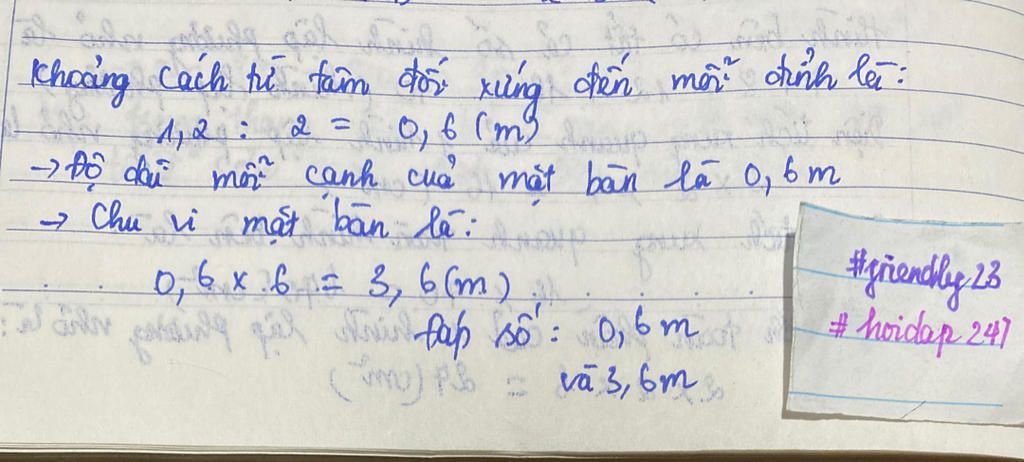 Khoảng cách từ tâm đối xứng đến mỗi đỉnh là:
1,2 : 2 = 0,6 (m)
→ Độ dài mỗi cạnh của mặt bàn là 0,6 m
→ Chu vi mặt bàn là:
0,6 x 6 = 3,6 (m)
Đáp số: 0,6 m
và 3,6 m
#friendly23
# hoidap 247